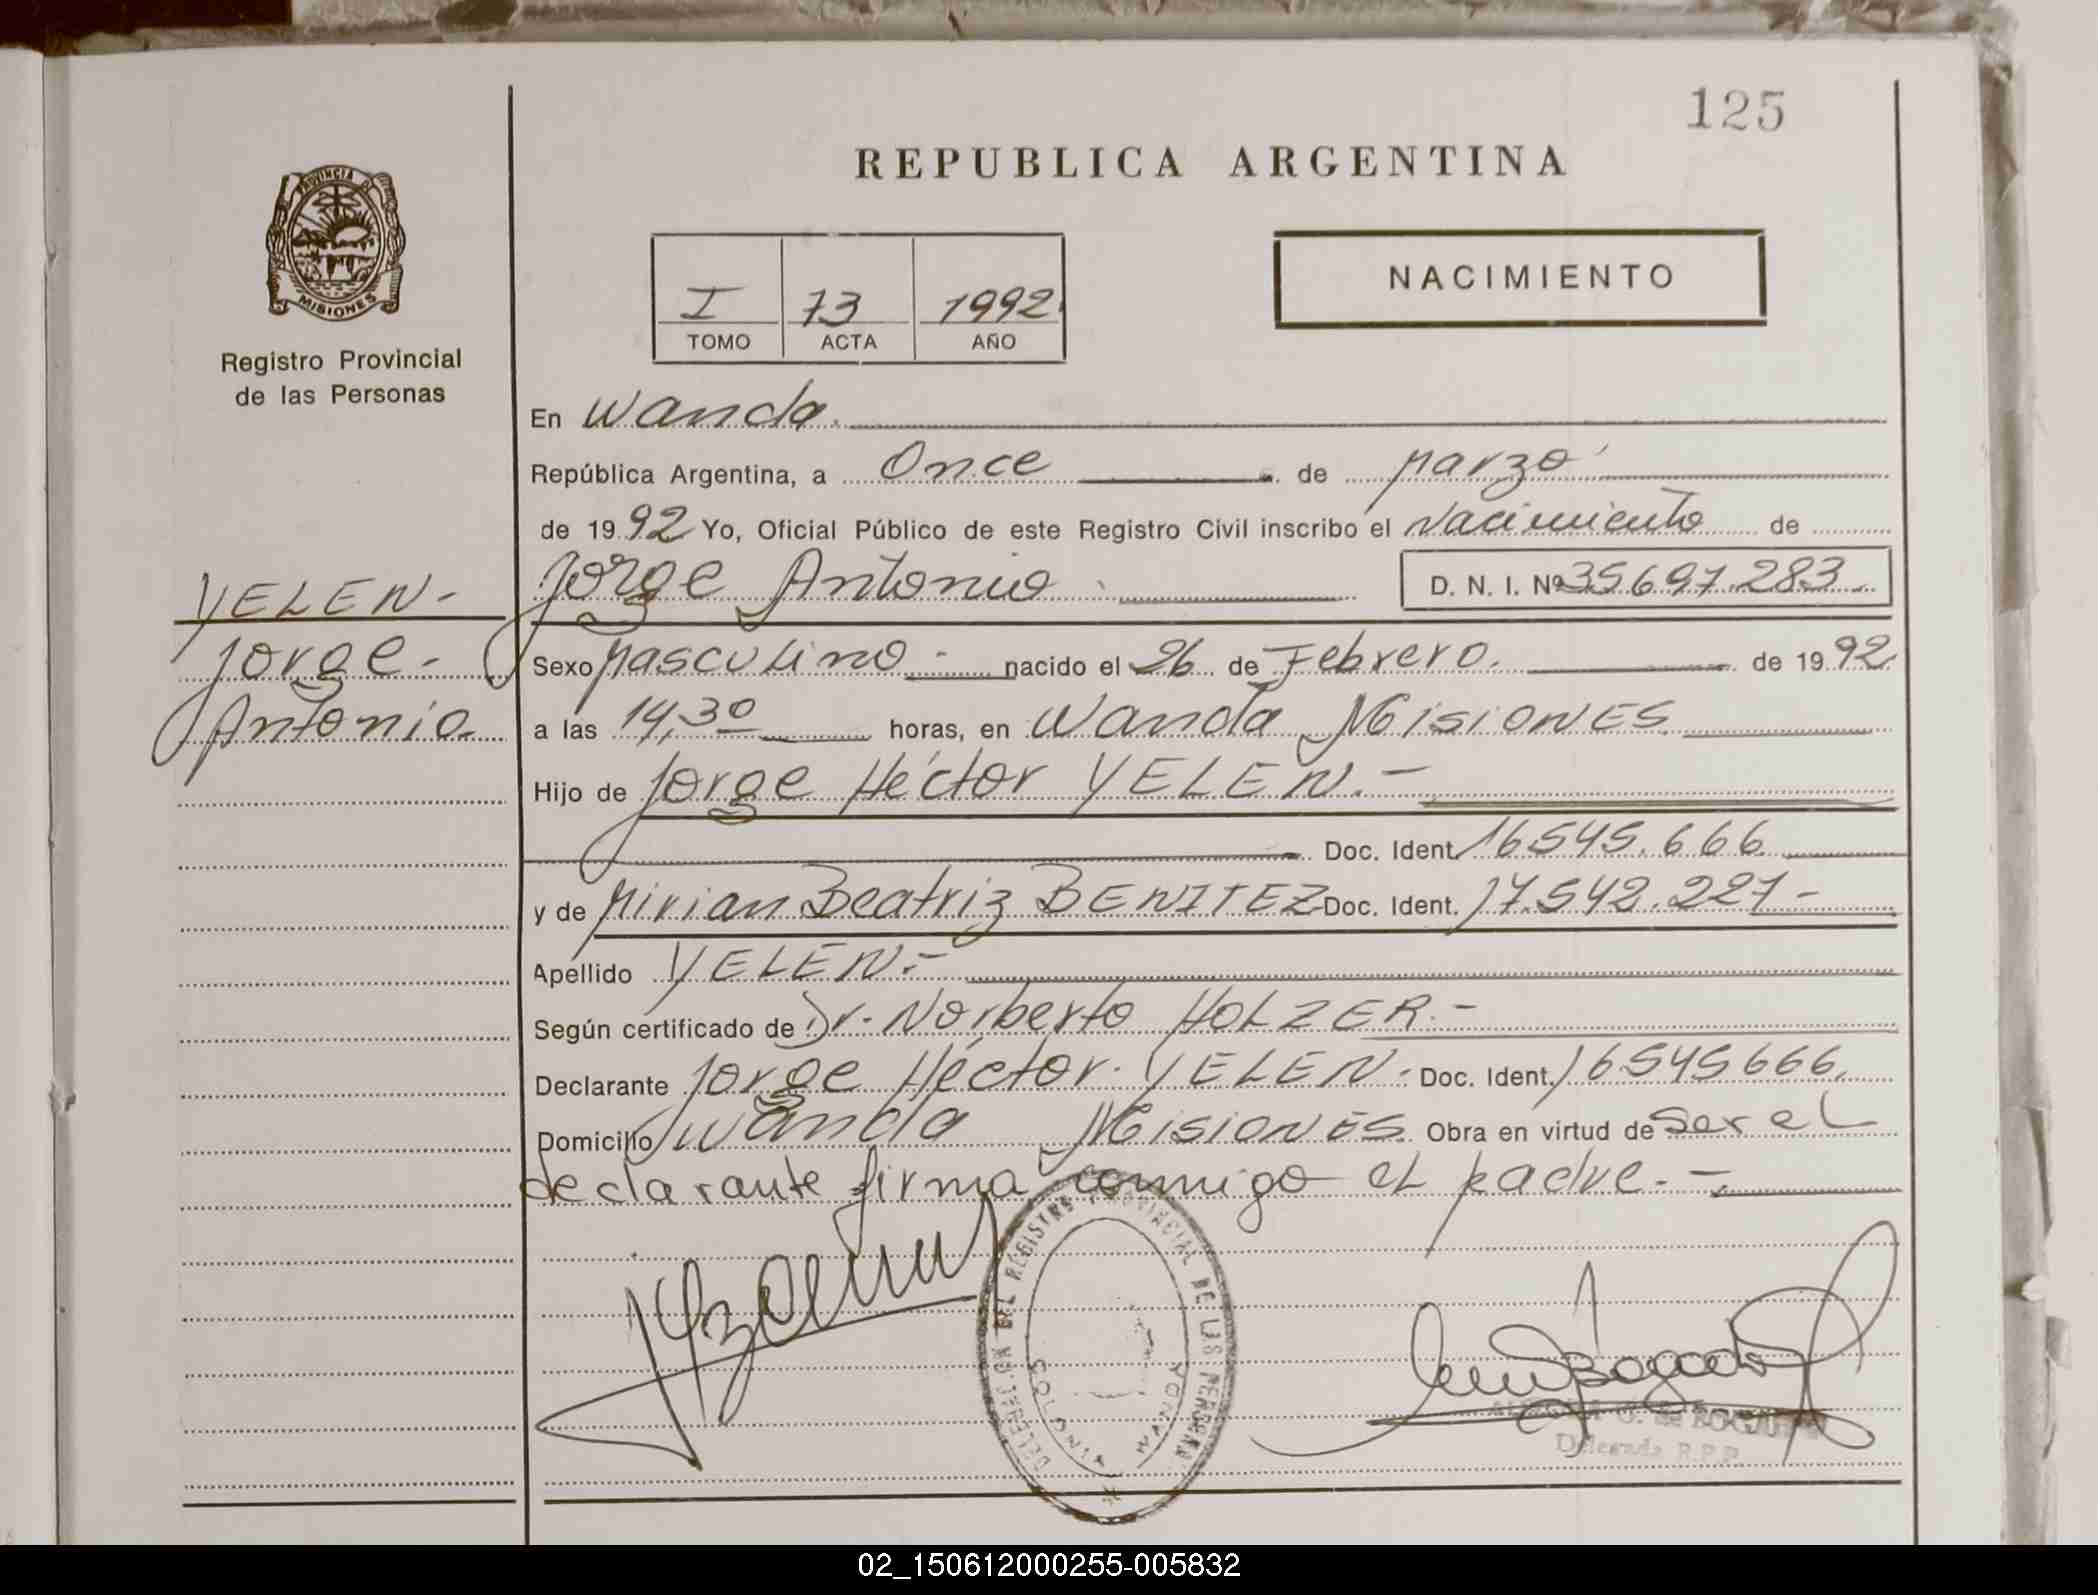 125
REPUBLICA ARGENTINA
PROVINCIA DE
MISIONES
Registro Provincial
de las Personas
I 73 1992
TOMO ACTA AÑO
NACIMIENTO
En Wanda.
República Argentina, a Once de Marzo
de 1992 Yo, Oficial Público de este Registro Civil inscribo el Nacimiento de
YELEN-
Jorge-
Antonio-
Jorge Antonio D. N. I. Nº 35697.283
Sexo Masculino - nacido el 26 de Febrero. de 1992
a las 14,30 horas, en Wanda Misiones
Hijo de Jorge Héctor YELEN.-
Doc. Ident. 16545.666
y de Mirian Beatriz BENITEZ Doc. Ident. 17.542.227-
Apellido YELEN.-
Según certificado de Dr. Norberto HOLZER.-
Declarante Jorge Héctor YELEN. Doc. Ident. 16545666.
Domicilio Wanda Misiones Obra en virtud de Ser el
declarante firma conmigo el padre.-
DELEGACION DEL REGISTRO PROVINCIAL DE LAS PERSONAS
COLONIA WANDA
G. de BOGADO
Delegada R.P.P.
02_150612000255-005832